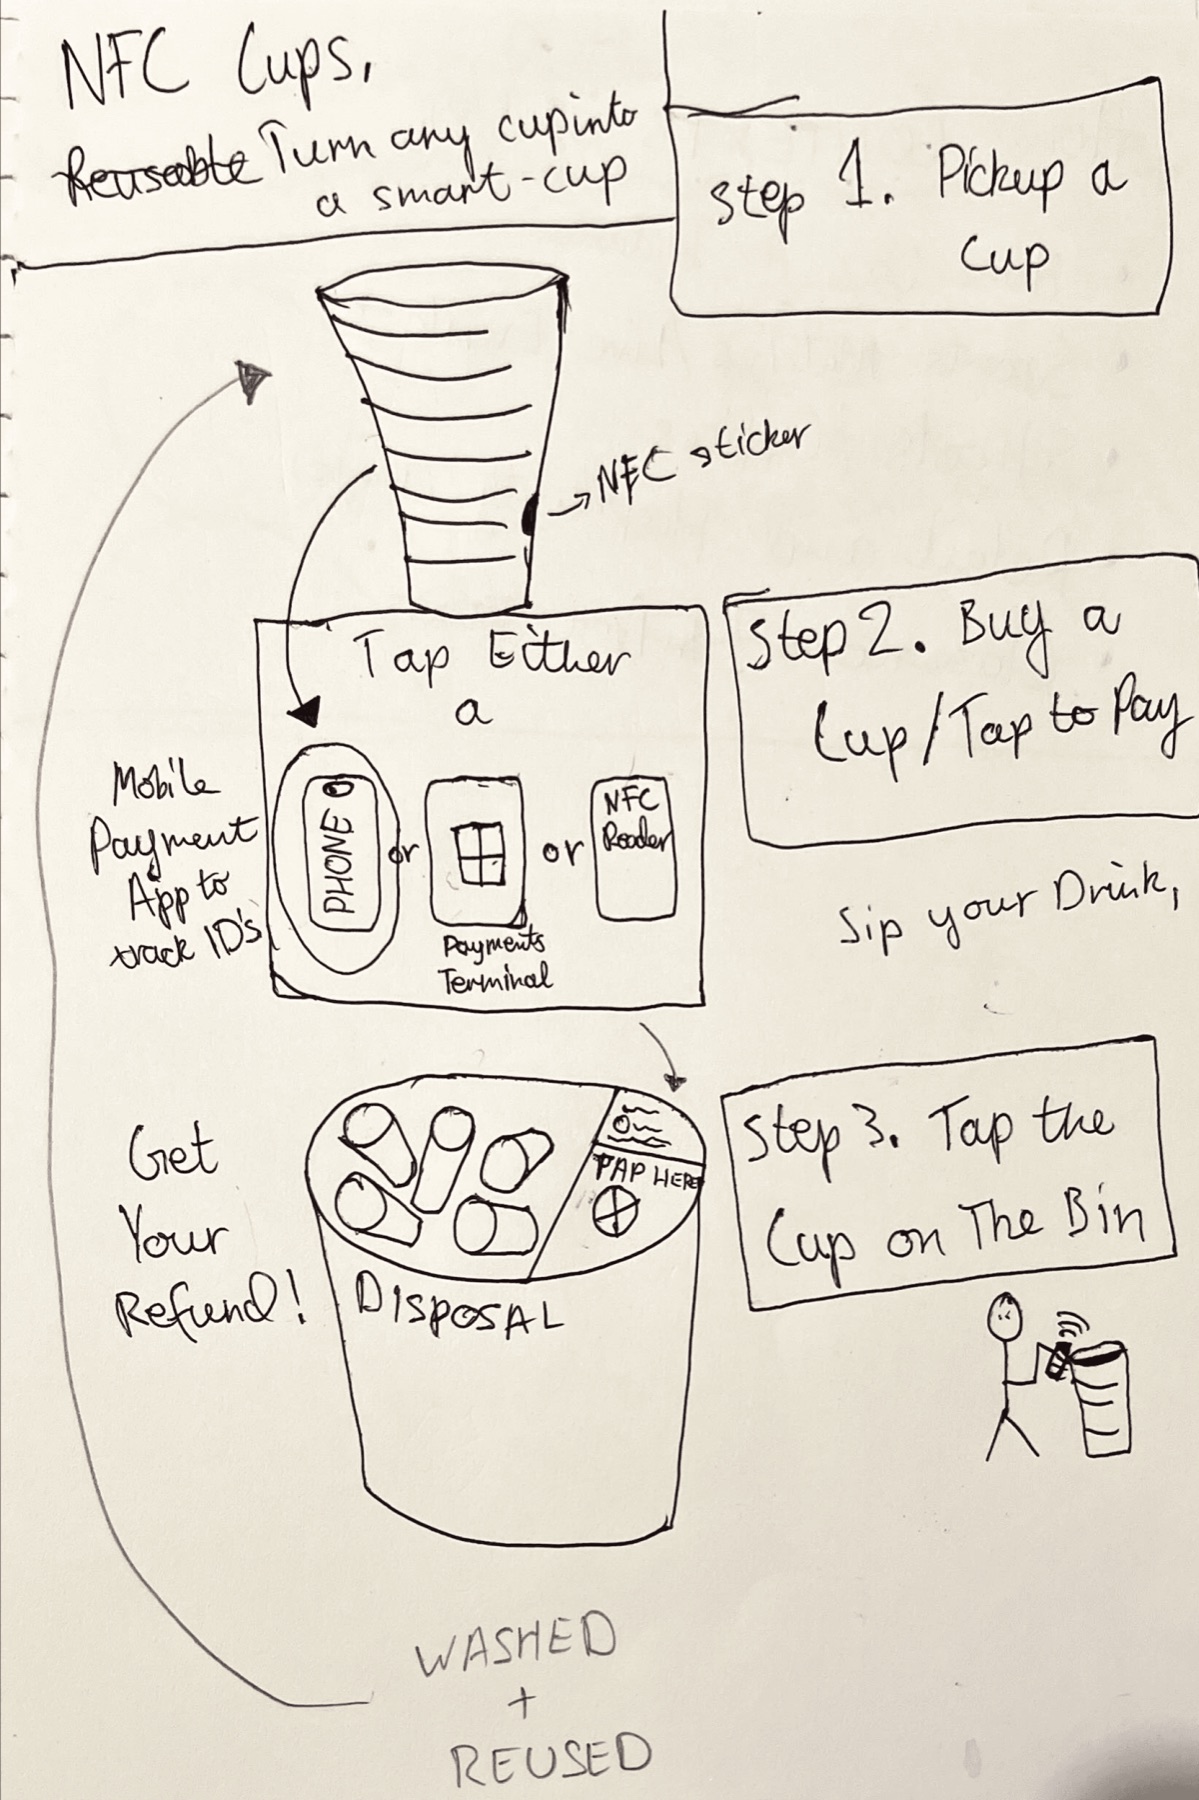 NFC Cups.
Reuseable Turn any cup into
a smart-cup
Step 1. Pickup a
Cup
NFC sticker
Tap Either
a
Step 2. Buy a
Cup/Tap to Pay
Mobile
Payment
App to
track ID's
PHONE
or
or
NFC
Reader
Payments
Terminal
Sip your Drink,
Get
Your
Refund!
TAP HERE
DISPOSAL
Step 3. Tap the
Cup on The Bin
WASHED
+
REUSED